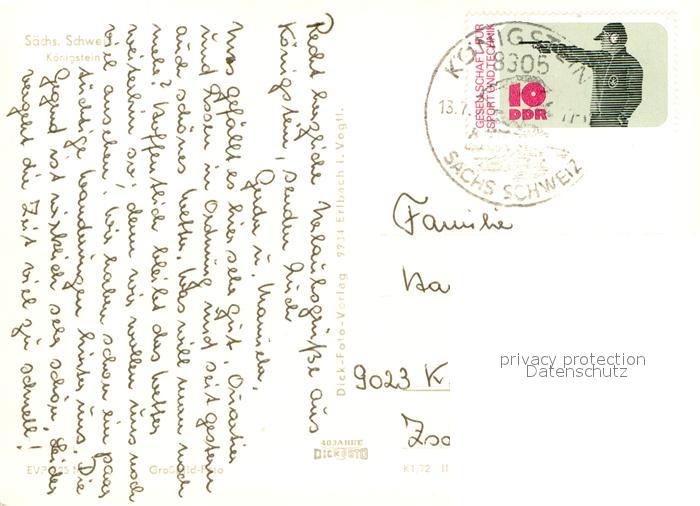 Sächs. Schwei
Königstein
Recht herzliche Urlaubsgrüße aus
Königstein, senden Euch
Gerda u. Manuela,
Uns gefällt es hier sehr gut. Quartier
und Essen in Ordnung und seit gestern
auch schönes Wetter. Was will man noch
mehr? Hoffentlich bleibt das Wetter
weiterhin so, denn wir wollen uns noch
viel ansehen. Wir haben schon ein paar
tüchtige Wanderungen hinter uns. Die
Gegend ist wirklich sehr schön, leider
vergeht die Zeit viel zu schnell!
EVP
Großbild-Foto
Dick-Foto-Verlag 9931 Erlbach i. Vogtl.
40 JAHRE
DICK FOTO
K1/72
KÖNIGSTEIN
8305
13.7.
SÄCHS SCHWEIZ
GESELLSCHAFT FÜR
SPORT UND TECHNIK
10
DDR
Familie
Ha
9023 K.
Zsc
privacy protection
Datenschutz